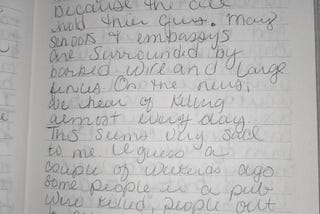 because the all
hold thier guns. Many
schools & embassys
are surrounded by
barbed wire and large
fences On the news,
we hear of killing
almost every day.
This seems very sad
to me I guess a
couple of weekends ago
some people in a pub
were killed, people out